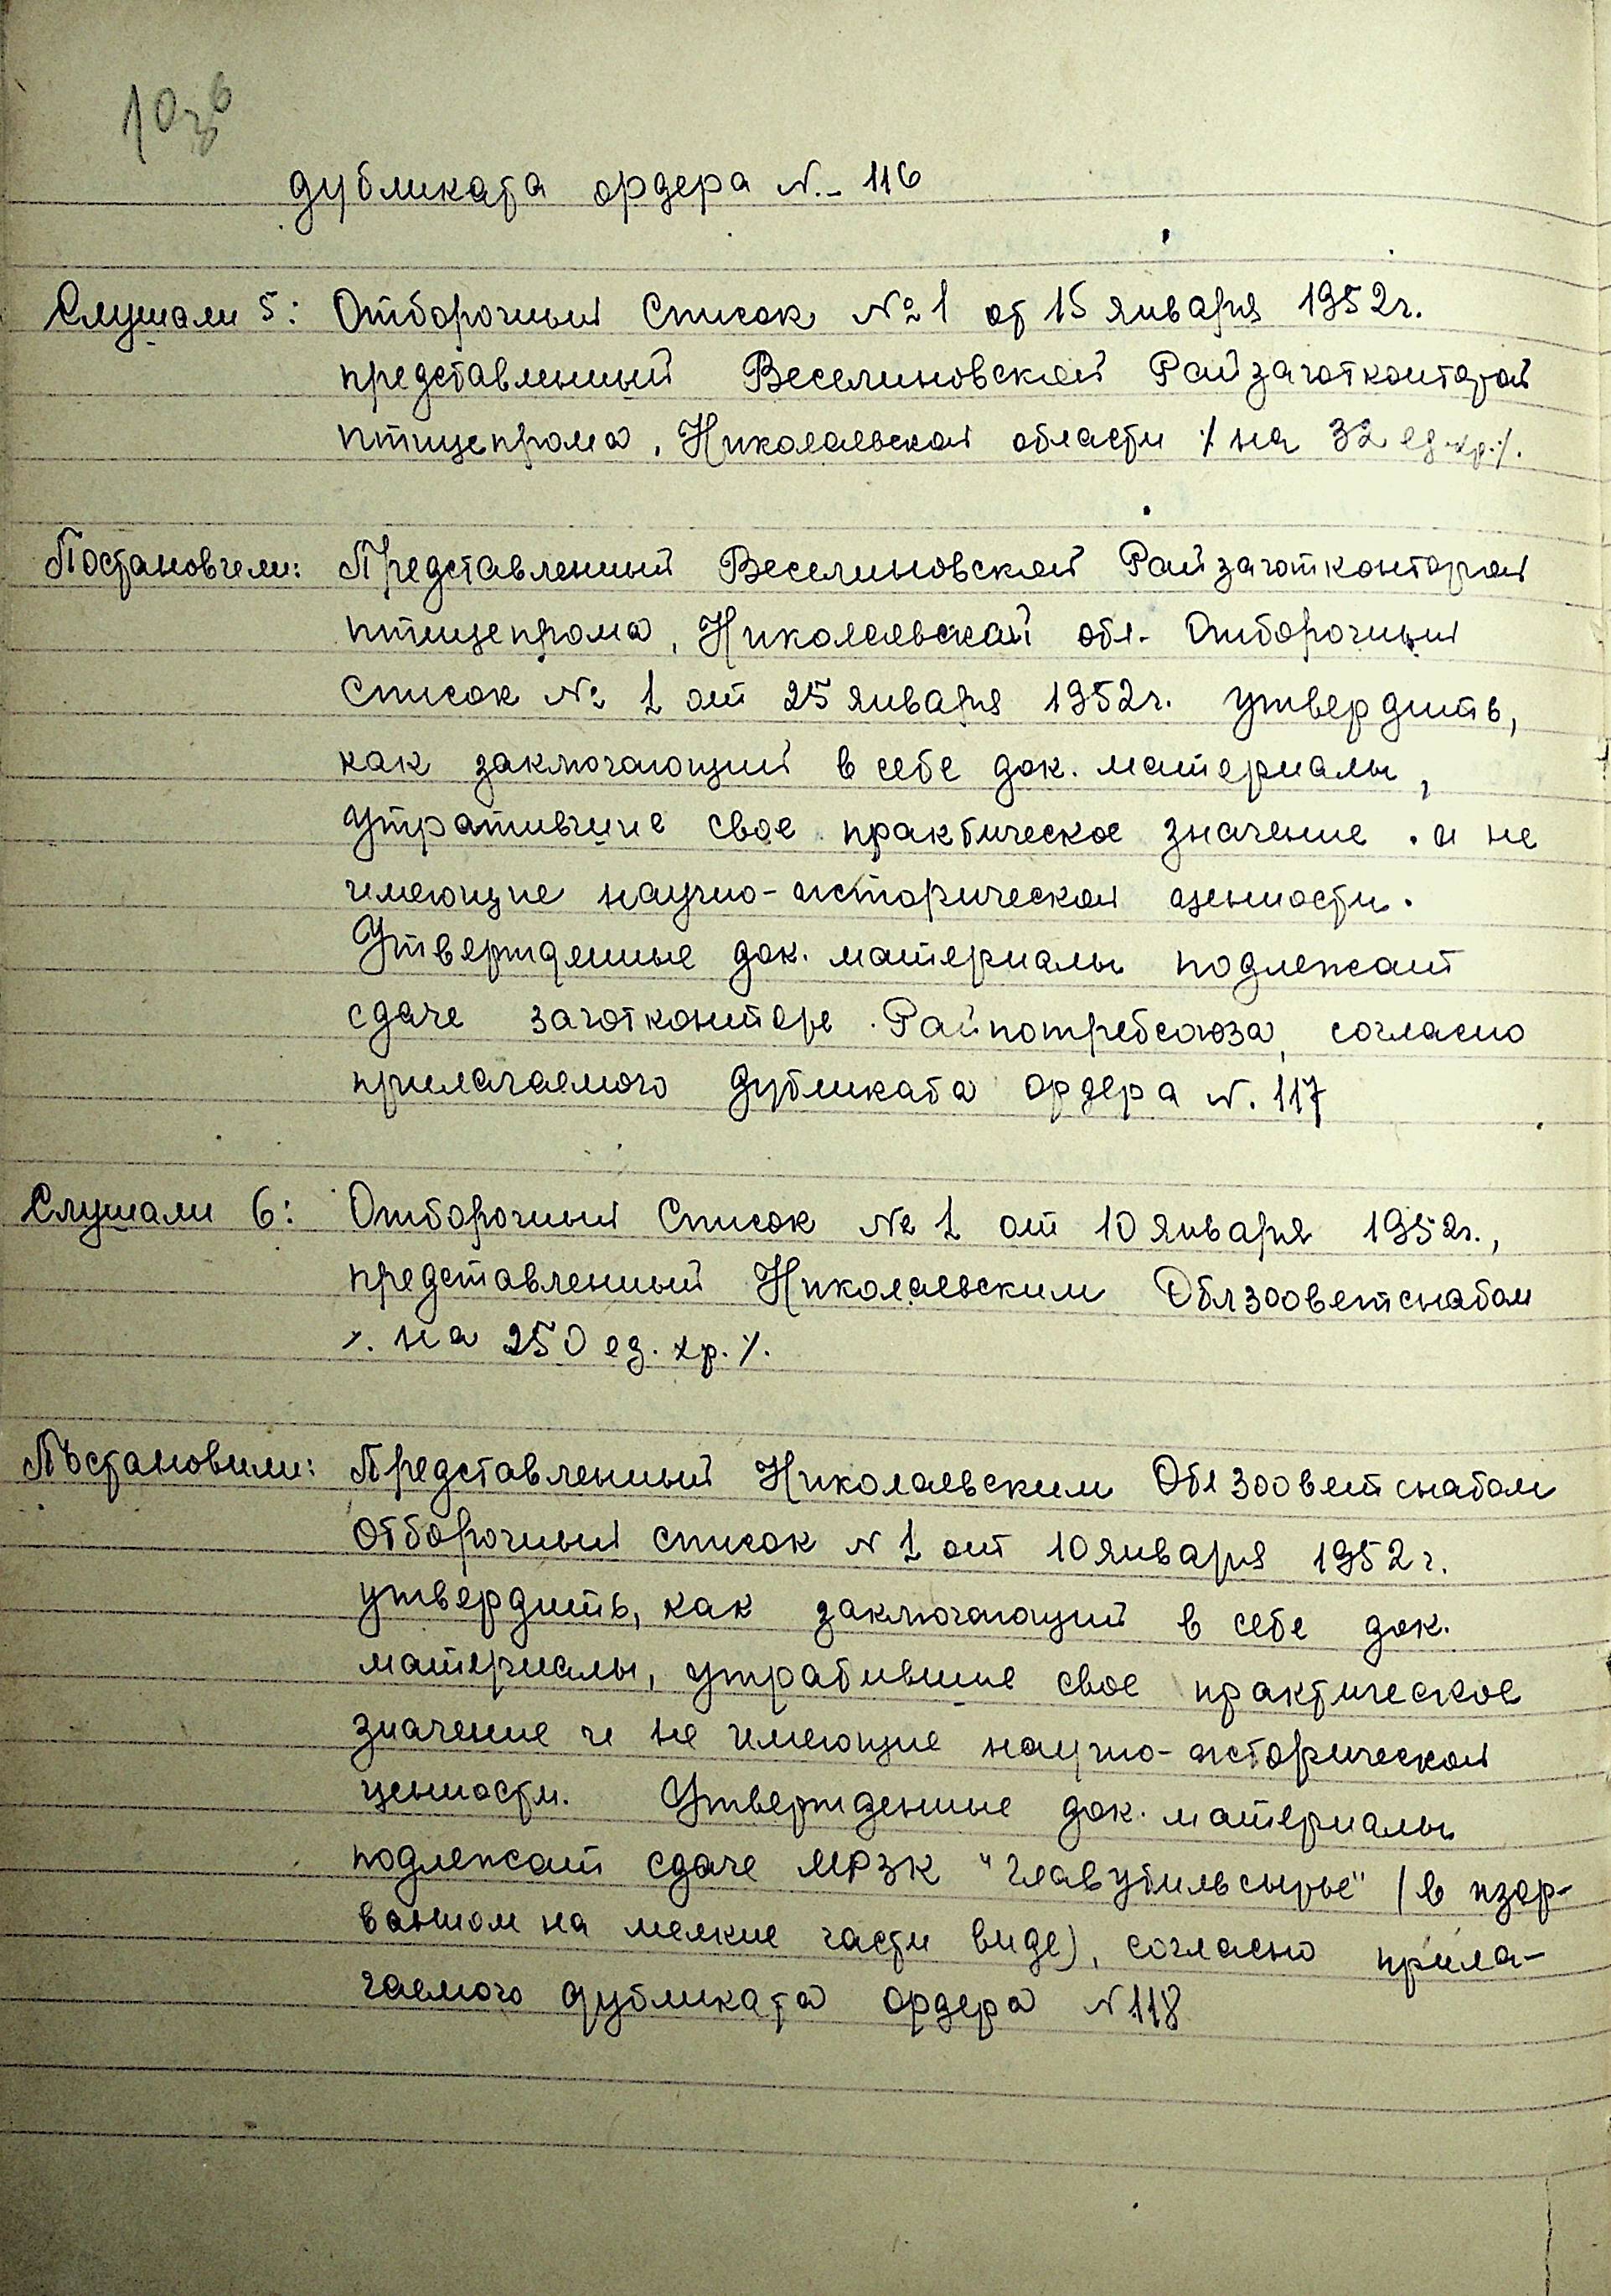 дубликата ордера N.- 116
Слушали 5: Отборочный Список №1 от 15 января 1952г.
представленный Веселиновской Райзаготконторой
птицепрома, Николаевской области ⁒ на 32 ед. хр.⁒.
Постановили: Представленный Веселиновской Райзаготконторой
птицепрома, Николаевской обл. Отборочный
Список № 1 от 25 января 1952г. утвердить,
как заключающий в себе док. материалы,
утратившие свое практическое значение и не
имеющие научно-исторической ценности.
Утвержденные док. материалы подлежат
сдаче заготконторе Райпотребсоюза, согласно
прилагаемого дубликата ордера N. 117
Слушали 6: Отборочный Список № 1 от 10 января 1952г.,
представленный Николаевским Облзооветснабом
⁒ на 250 ед. хр. ⁒.
Постановили: Представленный Николаевским Облзооветснабом
отборочный список N 1 от 10 января 1952г.
утвердить, как заключающий в себе док.
материалы, утратившие свое практическое
значение и не имеющие научно-исторической
ценности. Утвержденные док. материалы
подлежат сдаче МРЗК "Главутильсырье" (в изор-
ванном на мелкие части виде), согласно прила-
гаемого дубликата ордера N 118